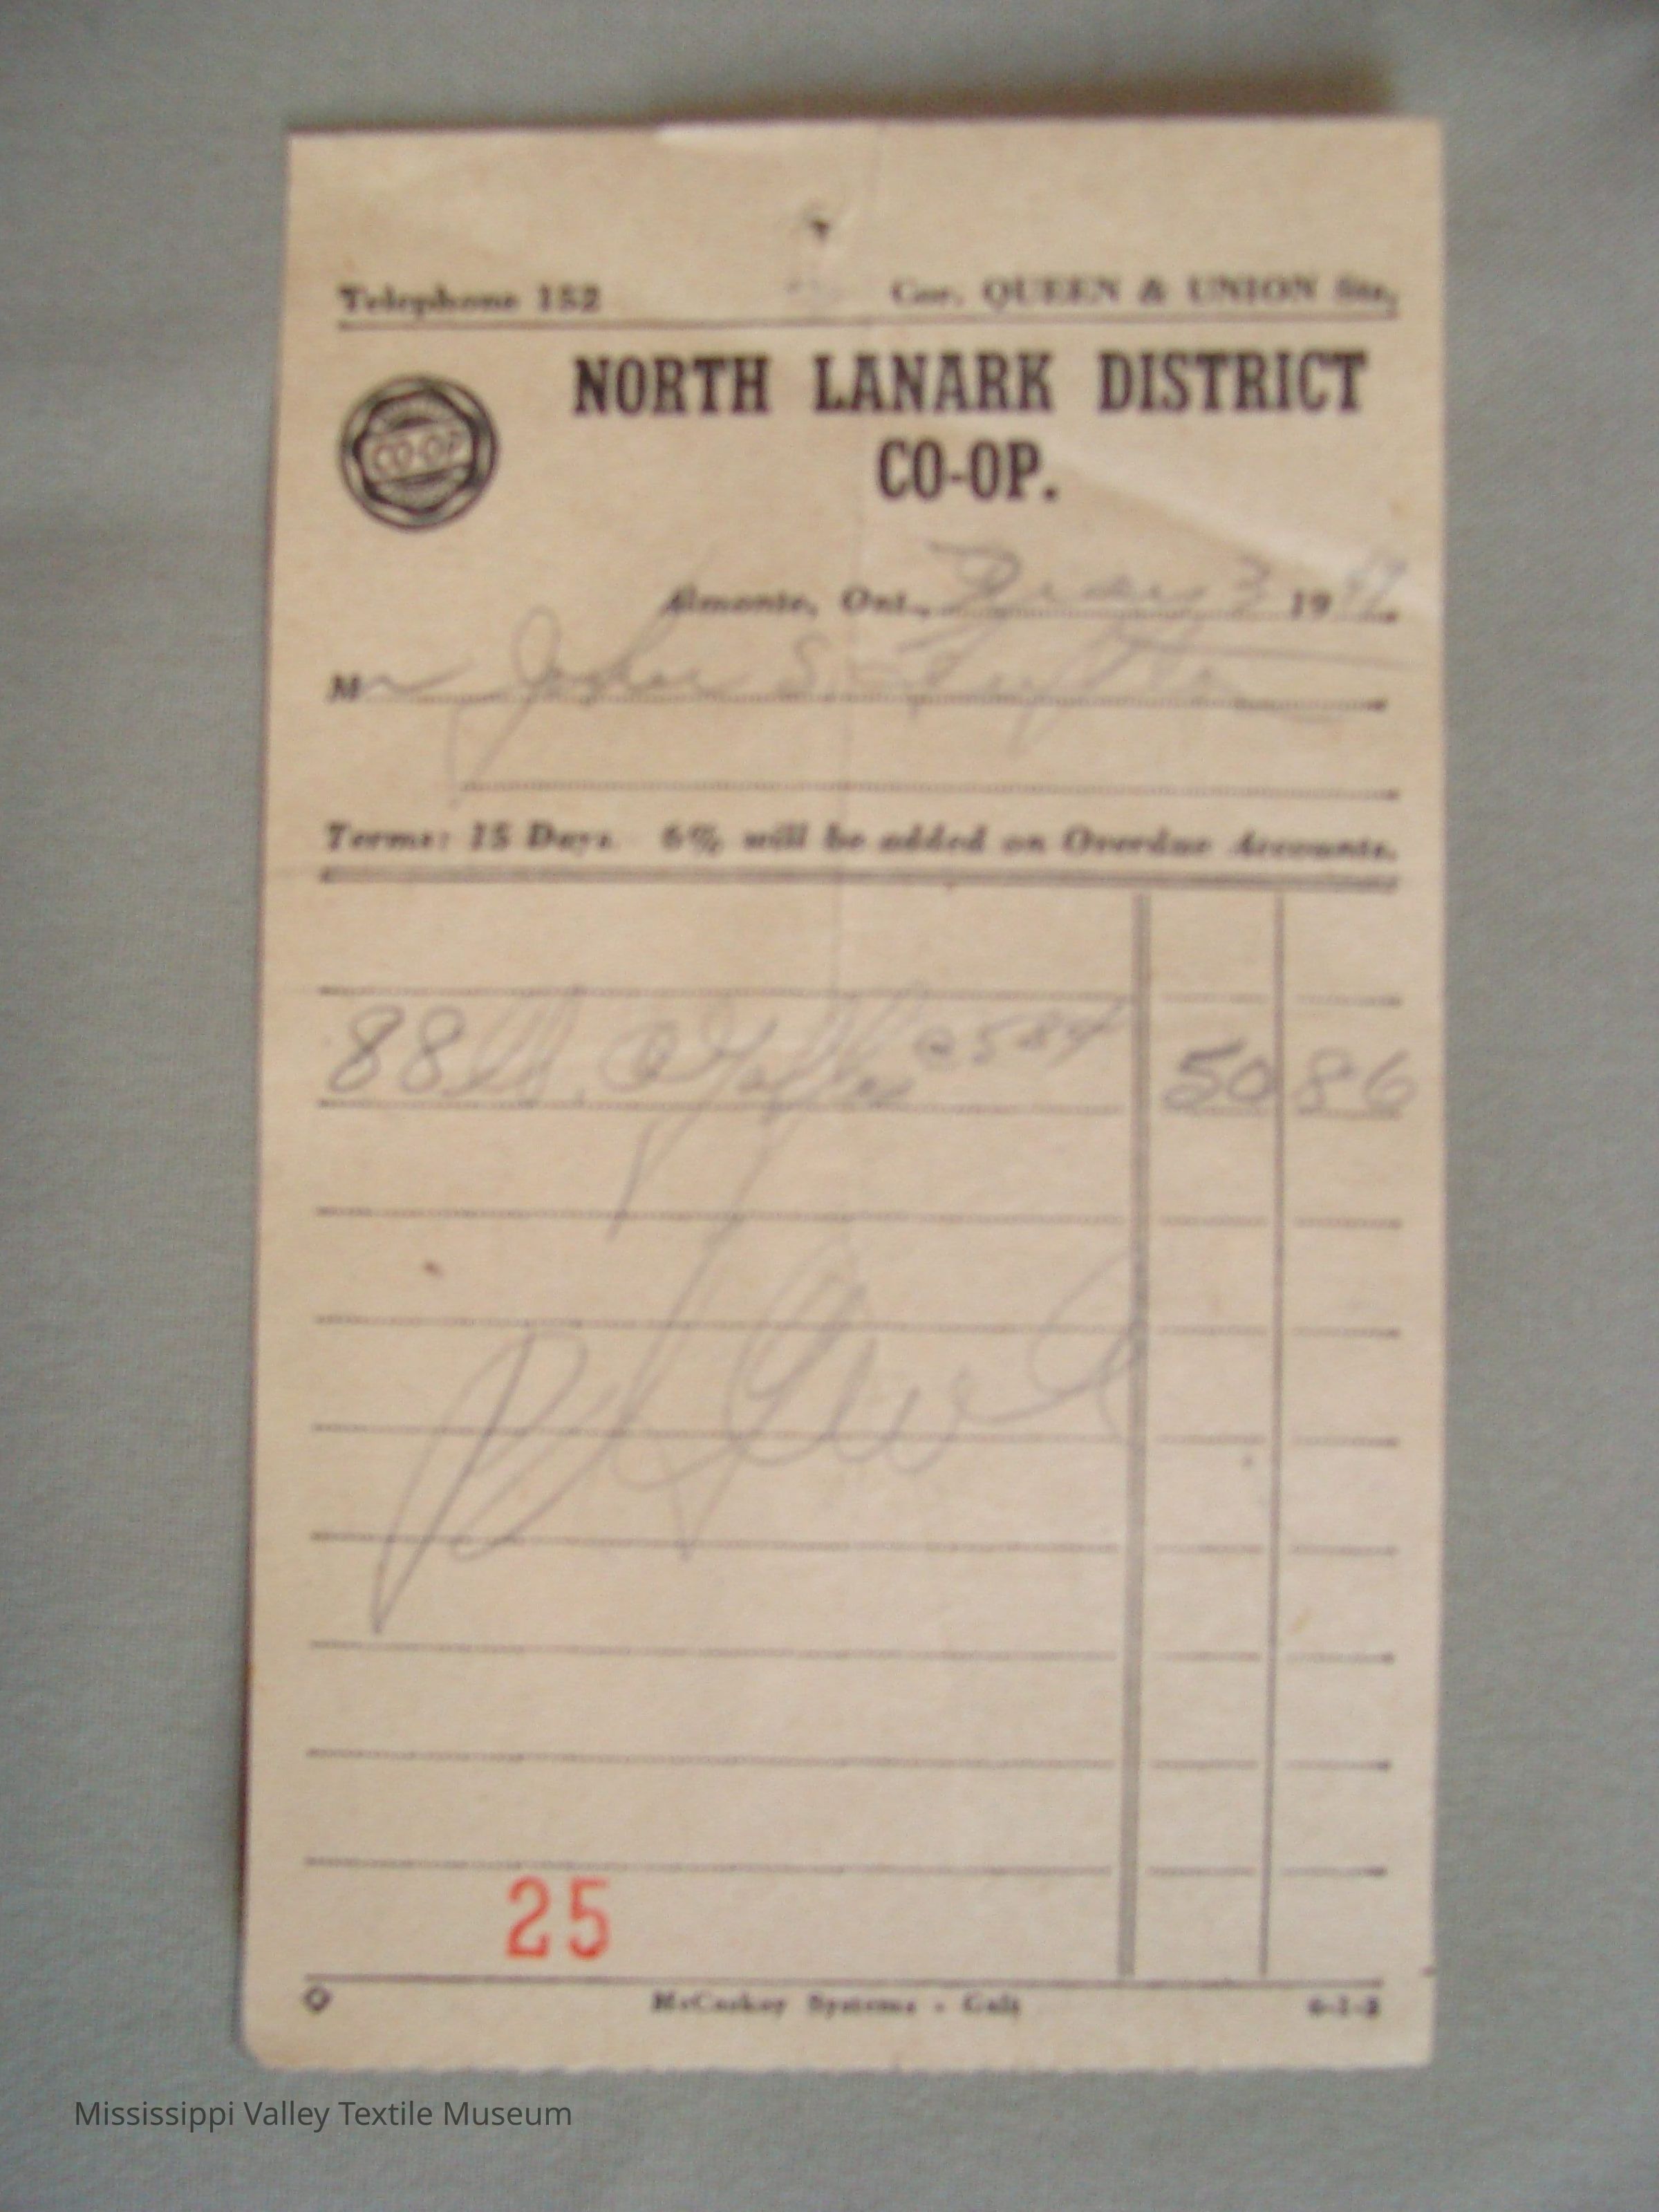 Telephone 152 Cor. QUEEN & UNION Sts,
CO-OP
NORTH LANARK DISTRICT
CO-OP.
Almonte, Ont., 3 19
Mr John S.
Terms: 15 Days. 6% will be added on Overdue Accounts.
88 lb. @ 58¢ 50 86
25
McCaskey Systems - Galt 6-1-8
Mississippi Valley Textile Museum